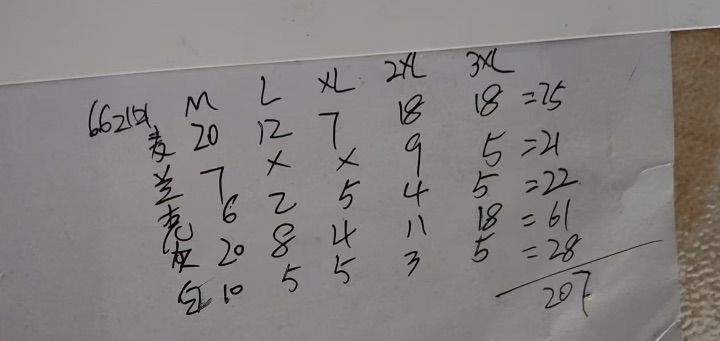 M L XL 2XL 3XL
20 12 7 18 18 =75
兰 7 × × 9 5 =21
6 2 5 4 5 =22
灰 20 8 4 11 18 =61
10 5 5 3 5 =28
207